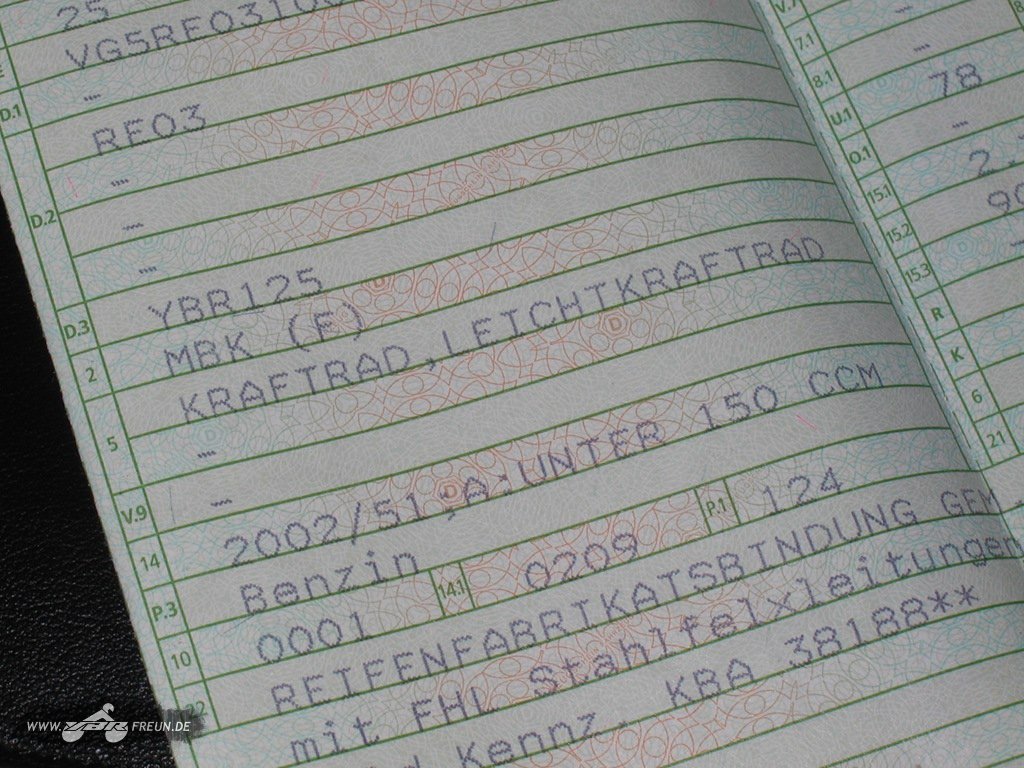 25
VG5RE0310
-
D.1
RE03
-
-
D.2
-
D.3 YBR125
2 MBK (F)
5 KRAFTRAD,LEICHTKRAFTRAD
-
V.9 -
14 2002/51;A:UNTER 150 CCM
P.3 Benzin 14.1 0209 P.1 124
10 0001
22 REIFENFABRIKATSBINDUNG GEM.
mit FHL Stahlfelxleitungen
Kennz. KBA 38188**
V.7
7.1 -
8.1 -
U.1 78
O.1 -
15.1 2.
15.2 90
15.3 -
R
K
6
21
WWW.YBR-FREUN.DE